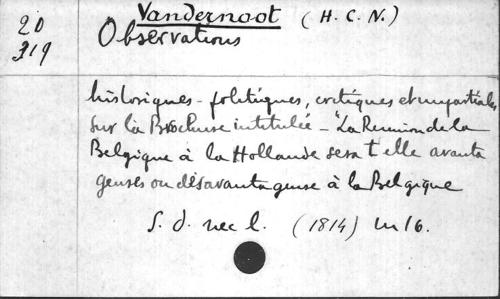 20
319
Vandernoot (H. C. N.)
Observations
historiques - politiques, critiques et impartiales
sur la Brochure intitulée - "La Reunion de la
Belgique à la Hollande sera t elle avanta
geuses ou désavantageuse à la Belgique
S. d. nec l. (1814) in 16.